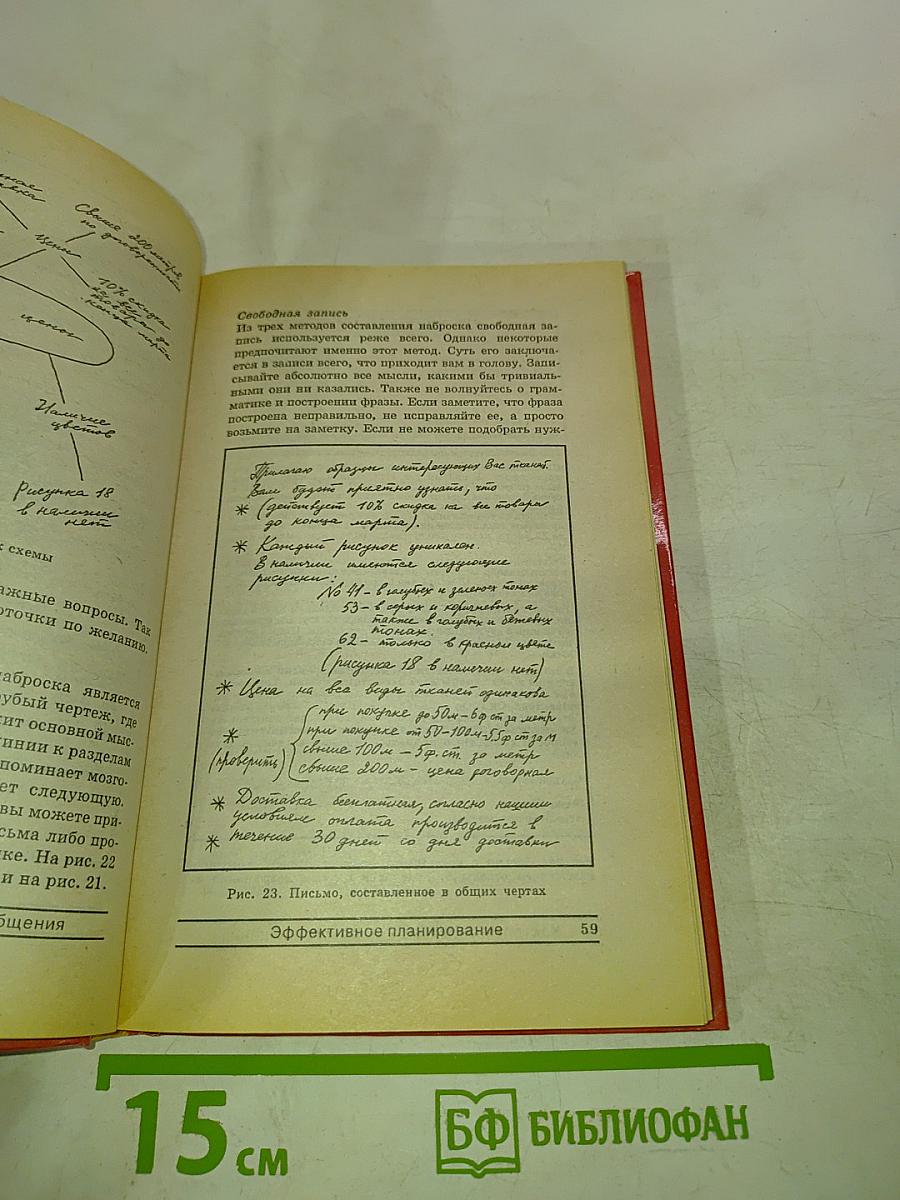 Свыше 200 метров
по договоренности
Цены
10% скидка
на все
товары до
конца марта
цены
Наличие
цветов
Рисунка 18
в наличии
нет
схемы
важные вопросы. Так
рточки по желанию.
наброска является
рубый чертеж, где
сит основной мыс-
линии к разделам
поминает мозго-
ет следующую.
вы можете при-
сьма либо про-
ке. На рис. 22
и на рис. 21.
бщения
Свободная запись
Из трех методов составления наброска свободная за-
пись используется реже всего. Однако некоторые
предпочитают именно этот метод. Суть его заключа-
ется в записи всего, что приходит вам в голову. Запи-
сывайте абсолютно все мысли, какими бы тривиаль-
ными они ни казались. Также не волнуйтесь о грам-
матике и построении фразы. Если заметите, что фраза
построена неправильно, не исправляйте ее, а просто
возьмите на заметку. Если не можете подобрать нуж-
Прилагаю образцы интересующих Вас тканей.
Вам будет приятно узнать, что
* (действует 10% скидка на все товары
до конца марта).
* Каждый рисунок уникален.
В наличии имеются следующие
рисунки:
№ 41 - в голубых и зеленых тонах
53 - в серых и коричневых, а
также в голубых и бежевых
тонах.
62 - только в красном цвете
(рисунка 18 в наличии нет)
* Цена на все виды тканей одинакова
при покупке до 50м - 6ф ст за метр
* при покупке от 50-100м - 5.5ф ст за м
(проверить) свыше 100м - 5ф. ст. за метр
свыше 200м - цена договорная
* Доставка бесплатная, согласно нашим
условиям оплата производится в
* течение 30 дней со дня доставки
Рис. 23. Письмо, составленное в общих чертах
Эффективное планирование 59
15 см
БФ БИБЛИОФАН